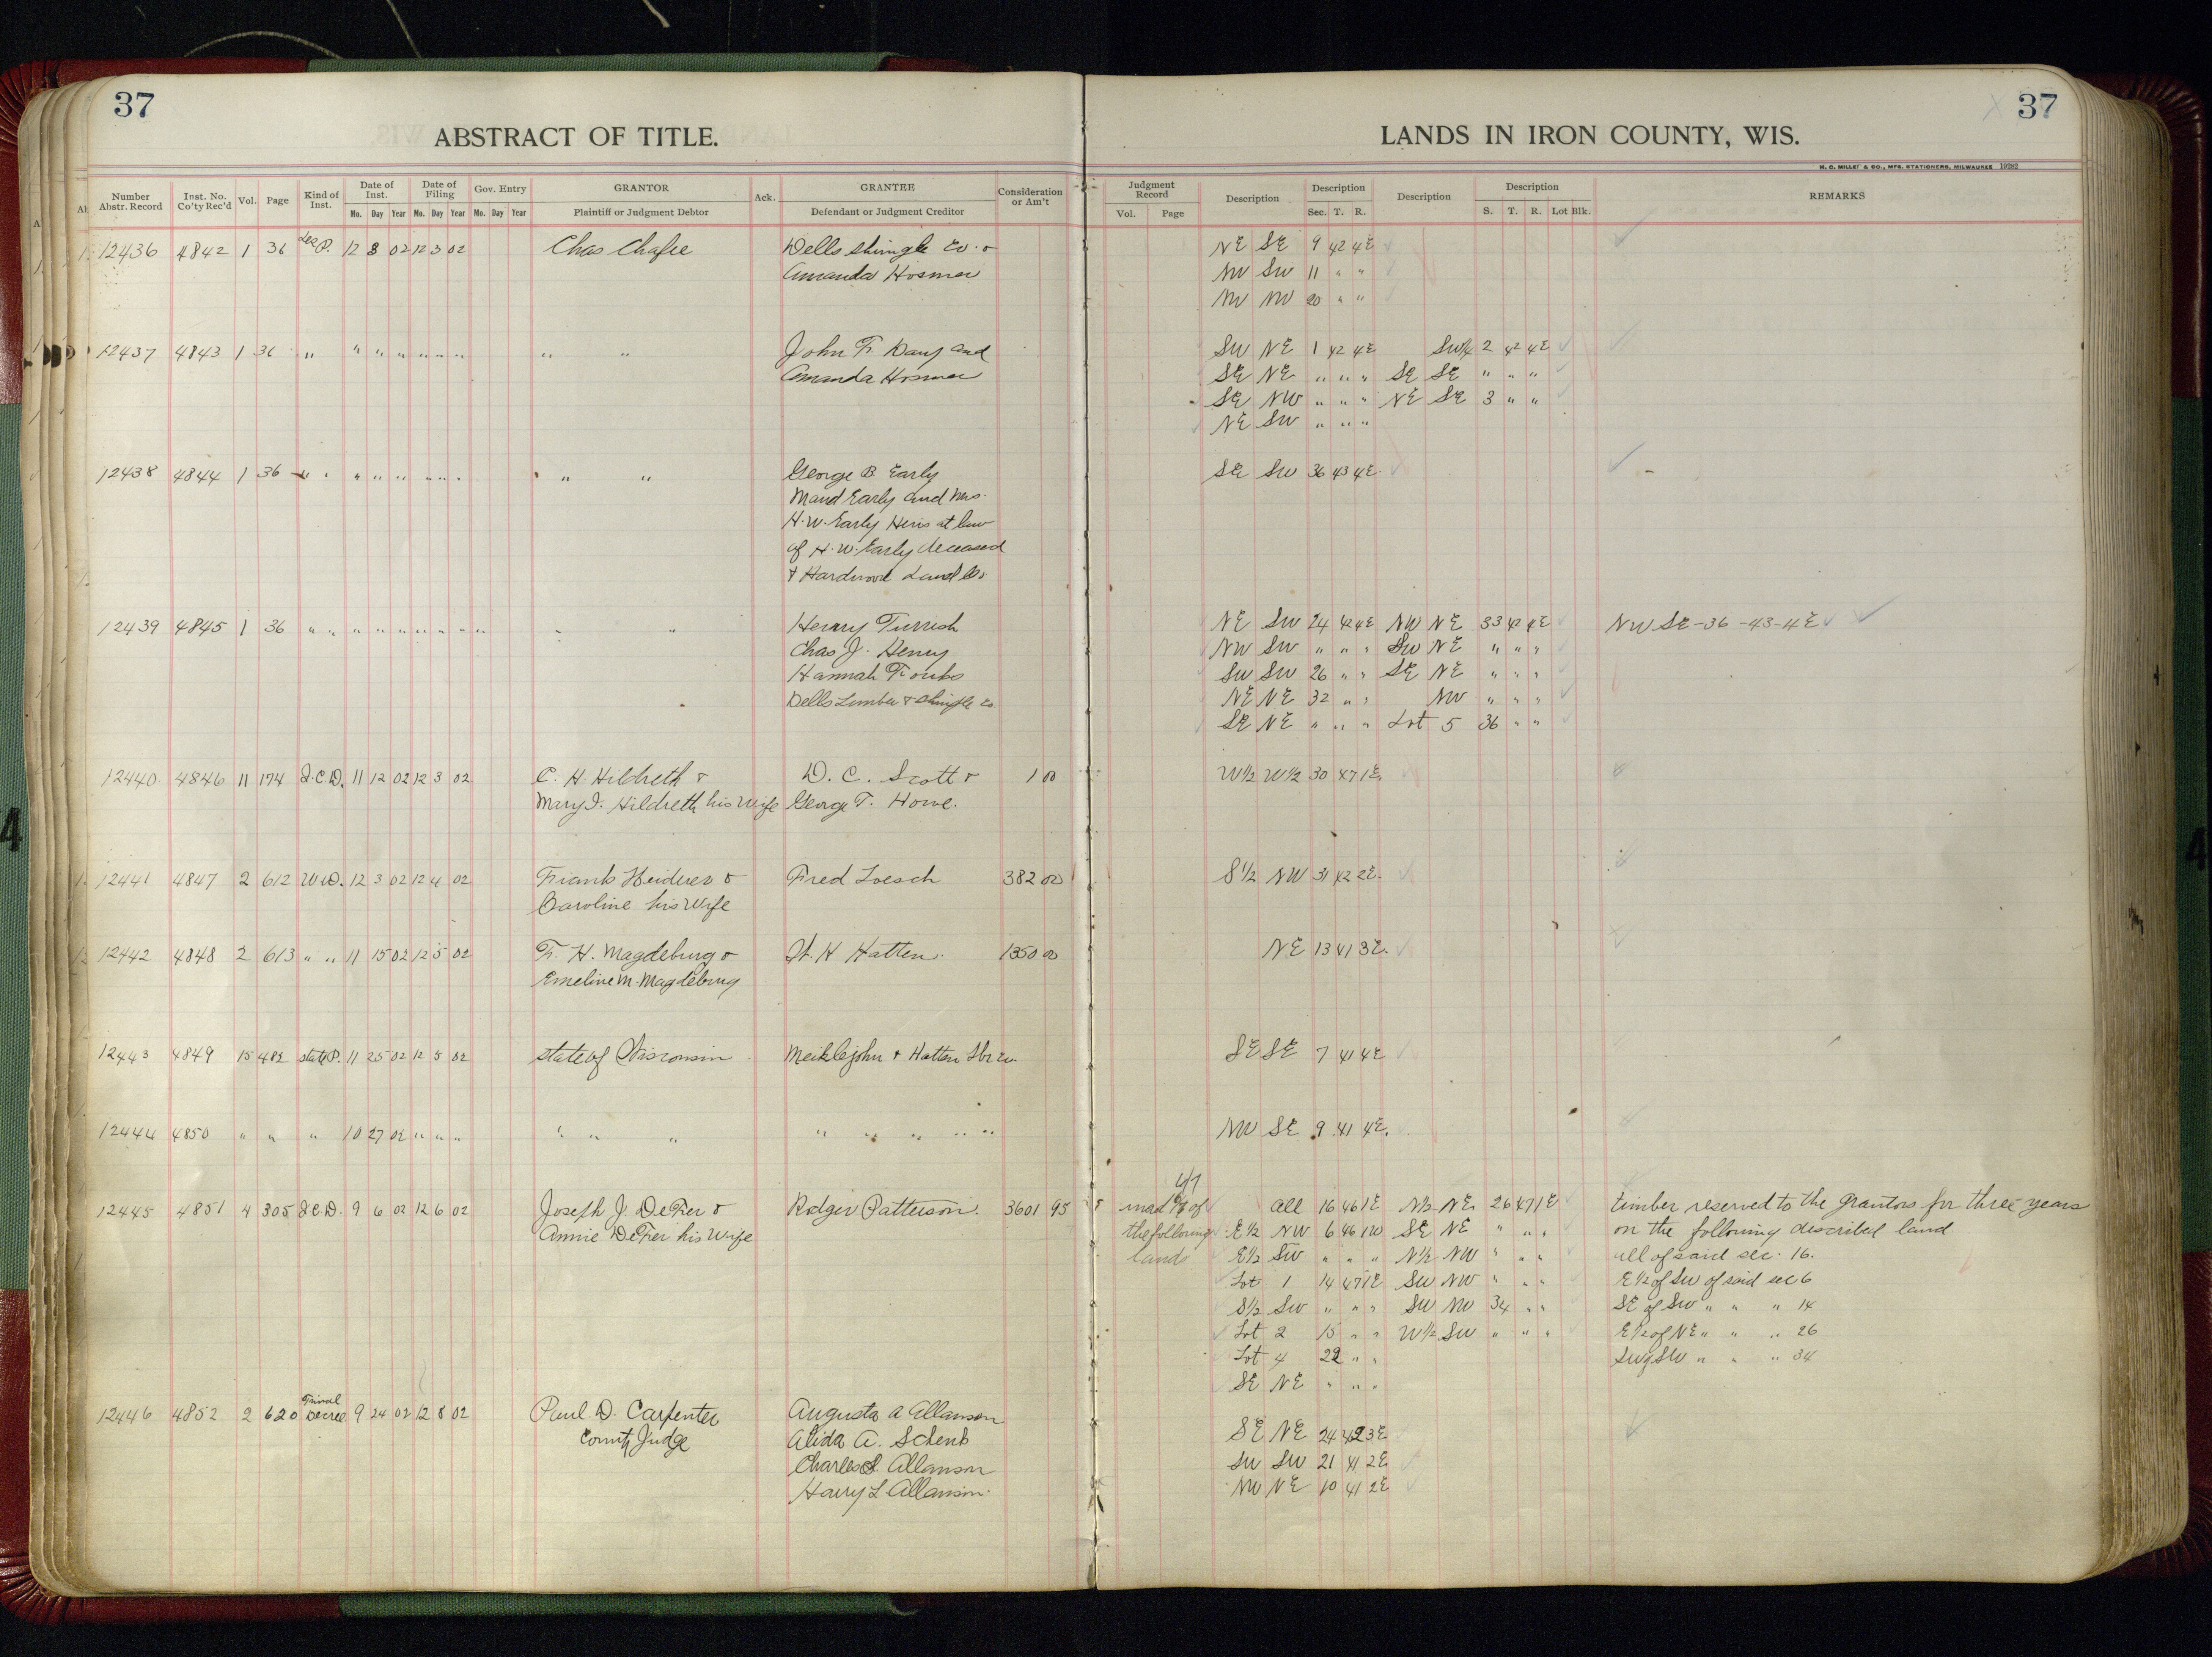 37
ABSTRACT OF TITLE.
37
LANDS IN IRON COUNTY, WIS.
H. C. MILLER & CO., MFG. STATIONERS, MILWAUKEE
Number Abstr. Record | Inst. No. Co'ty Rec'd | Vol. | Page | Kind of Inst. | Date of Inst. Mo. Day Year | Date of Filing Mo. Day Year | Gov. Entry Mo. Day Year | GRANTOR Plaintiff or Judgment Debtor | Ack. | GRANTEE Defendant or Judgment Creditor | Consideration or Am't
Judgment Record Vol. Page | Description | Description Sec. T. R. | Description | Description S. T. R. Lot Blk. | REMARKS
12436 4842 1 36 P. 12 3 02 12 3 02 Chas Chafee Dells Shingle Co. & NE SE 9 42 4E
Amanda Hosmer NW SW 11 " "
NW NW 20 " "
12437 4843 1 36 " " " " " " " " " John F. Dany and SW NE 1 42 4E SW¼ 2 42 4E
Amanda Hosmer SE NE " " " SE SE " " "
SE NW " " " NE SE 3 " "
NE SW " " "
12438 4844 1 36 " " " " " " " " " " George B Early SE SW 36 43 4E
Maud Early and Mrs.
H. W. Early Heirs at law
of H. W. Early deceased
& Hardwood Land Co.
12439 4845 1 36 " " " " " " " " " " " Henry Turrish NE SW 24 42 4E NW NE 33 42 4E NW SE-36-43-4E
Chas J. Henry NW SW " " " SW NE " " "
Hannah SW SW 26 " " SE NE " " "
Dells Lumber & Shingle Co NE NE 32 " " NW " " "
SE NE " " " Lot 5 36 " "
12440 4846 11 174 Q.C.D. 11 12 02 12 3 02 C. H. Hildreth & D. C. Scott & 1 00 W½ W½ 30 47 1E
Mary J. Hildreth his wife George T. Howe.
12441 4847 2 612 W.D. 12 3 02 12 4 02 Frank Heiderer & Fred Loesch 382 00 S½ NW 31 42 2E
Caroline his wife
12442 4848 2 613 " " 11 15 02 12 5 02 F. H. Magdeburg & H Hatten. 1350 00 NE 13 41 3E.
Emeline M. Magdeburg
12443 4849 15 482 State P. 11 25 02 12 5 02 State of Wisconsin Meiklejohn & Hatten Lbr Co. SE SE 7 41 4E
12444 4850 " " " 10 27 02 " " " " " " " " " " " NW SE 9 41 4E.
12445 4851 4 305 Q.C.D. 9 6 02 12 6 02 Joseph J. DeFer & Rodger Patterson. 3601 95 of All 16 46 1E N½ NE 26 47 1E timber reserved to the Grantors for three years
Annie DeFer his wife the following E½ NW 6 46 1W SE NE " " " on the following described land.
lands E½ SW " " " N½ NW " " " all of said sec. 16.
Lot 1 14 47 1E SW NW " " " E½ of SW of said sec 6
S½ SW " " " SW NW 34 " " SE of SW " " " 14
Lot 2 15 " " W½ SW " " " E½ of NE " " " 26
Lot 4 22 " " SW of SW " " " 34
SE NE " " "
12446 4852 2 620 Final Decree 9 24 02 12 8 02 Paul D. Carpenter Augusta A Allanson
County Judge Alida A. Schenk SE NE 24 42 3E
Charles S. Allanson SW SW 21 41 2E
Harry L Allanson. NW NE 10 41 2E